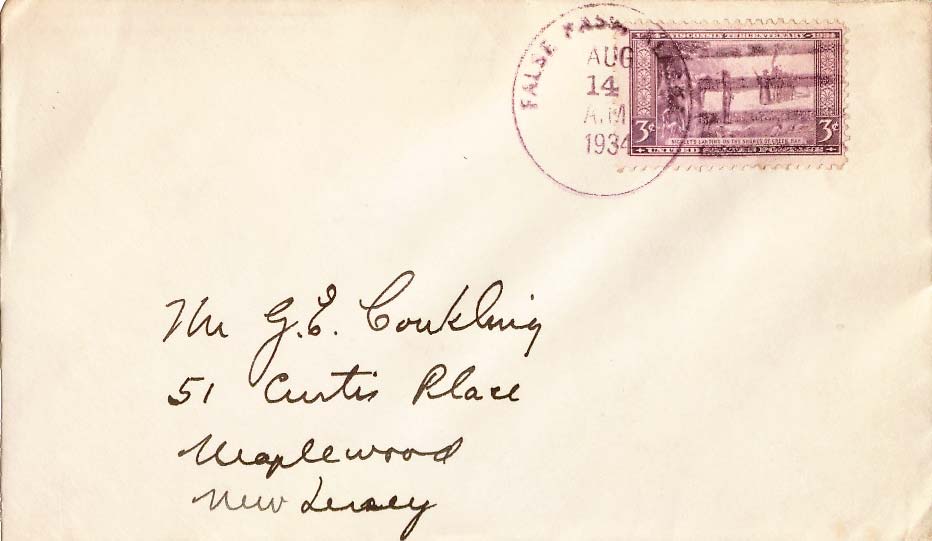 FALSE PASS, ALASKA
AUG
14
A.M
1934
WISCONSIN TERCENTENARY
3¢ 3¢
NICOLET'S LANDING ON THE SHORES OF GREEN BAY
UNITED STATES POSTAGE
Mr G.E. Conkling
51 Curtis Place
Maplewood
New Jersey